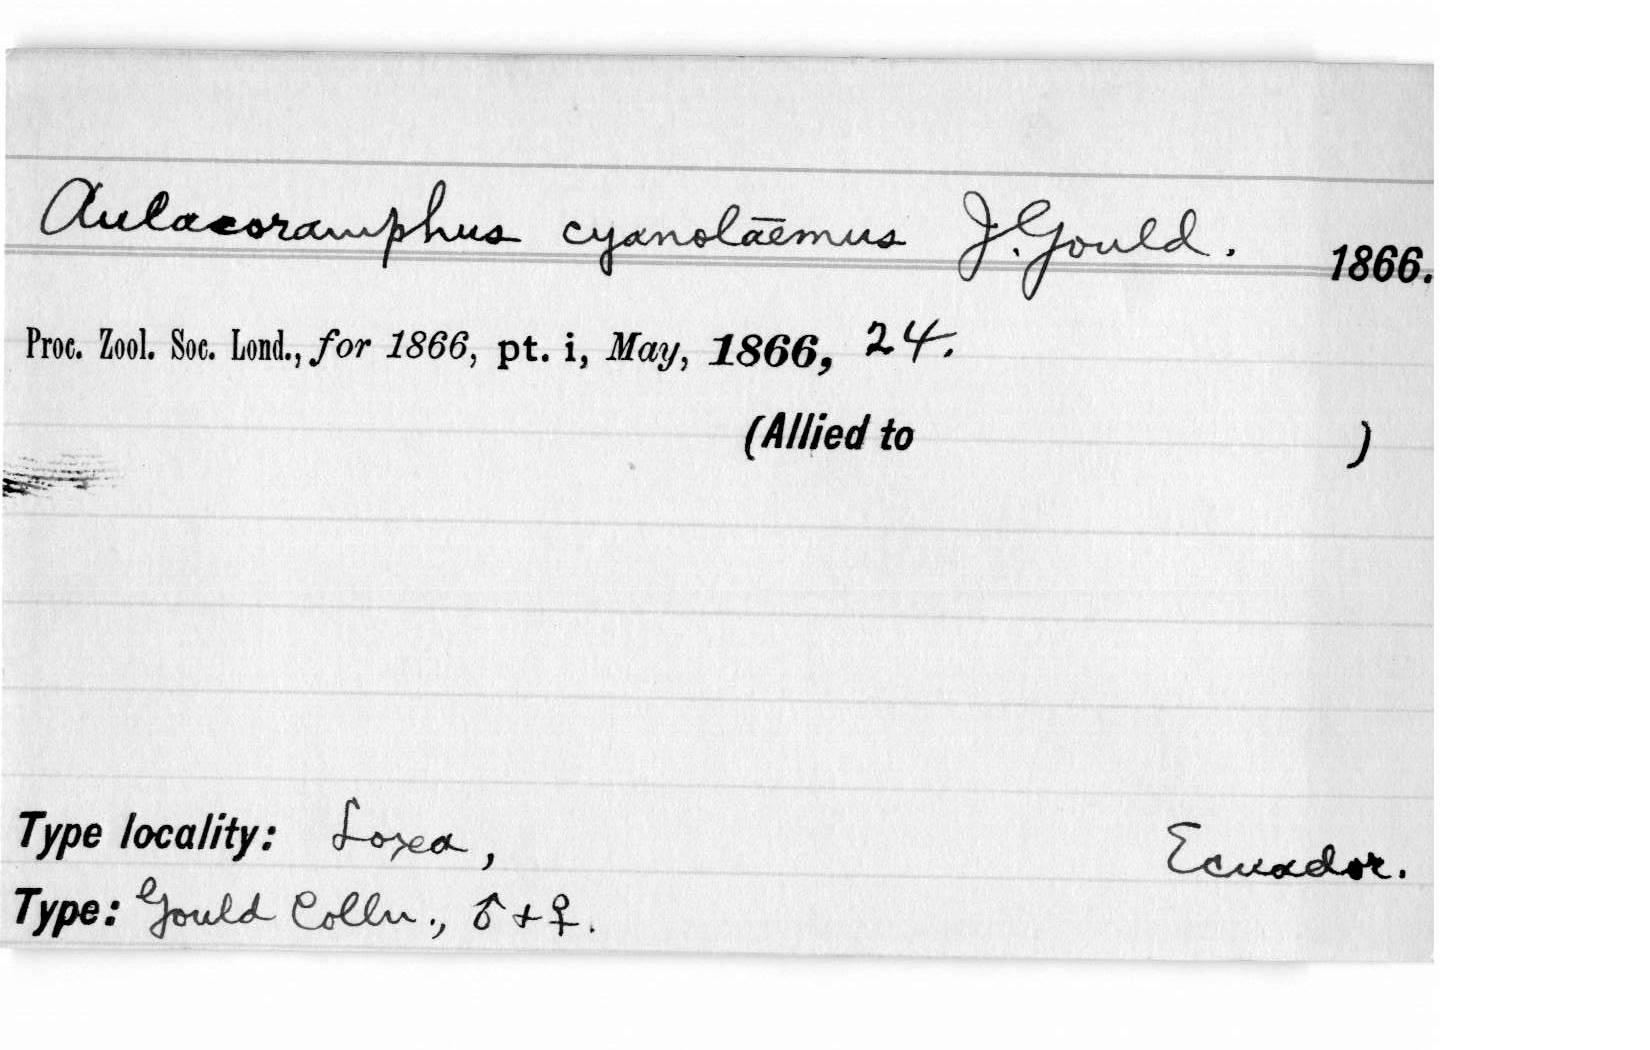 Aulacoramphus cyanolaēmus J. Gould. 1866.
Proc. Zool. Soc. Lond., for 1866, pt. i, May, 1866, 24.
(Allied to )
Type locality: Loxa, Ecuador.
Type: Gould Colln., ♂ + ♀.